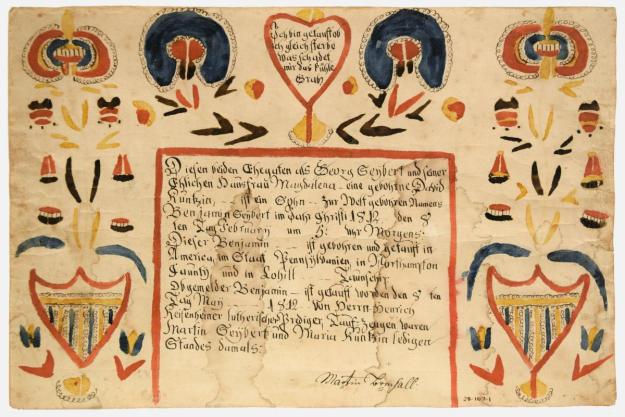 Ich bin getauft ob
ich gleich sterbe
was schadet
mir das kühle
Grab
Diesen beiden Ehegatten als Georg Seybert und seiner
Ehlichen Hausfrau Magdalena eine gebohrne David
Kuntzin, ist ein Sohn zur Welt gebohren Namens
Benjamin Seybert im Jahr Christi 1812 den 8
ten Tag Februarÿ um 5: uhr Morgens:
Dieser Benjamin ist gebohren und getauft in
America, im Staat Pennsylvanien in Northampton
County und in Lohill Taunschip
Obgemelder Benjamin ist getauft worden den 8 ten
Tag May 1812 Von Herrn Henrich
lutherischer Prediger, Tauf Zeugen waren
Martin Seybert und Maria Kuntzin ledigen
Standes damals:
Martin